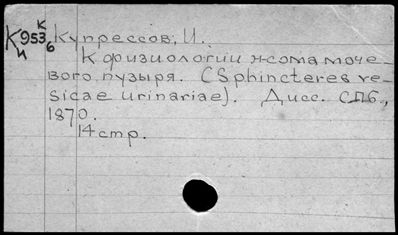 К К953 6 Купрессов, И.
и К физиологии жома моче-
вого пузыря. (Sphincteres ve-
sicae urinariae). Дисс. СПб.,
1870.
14 стр.